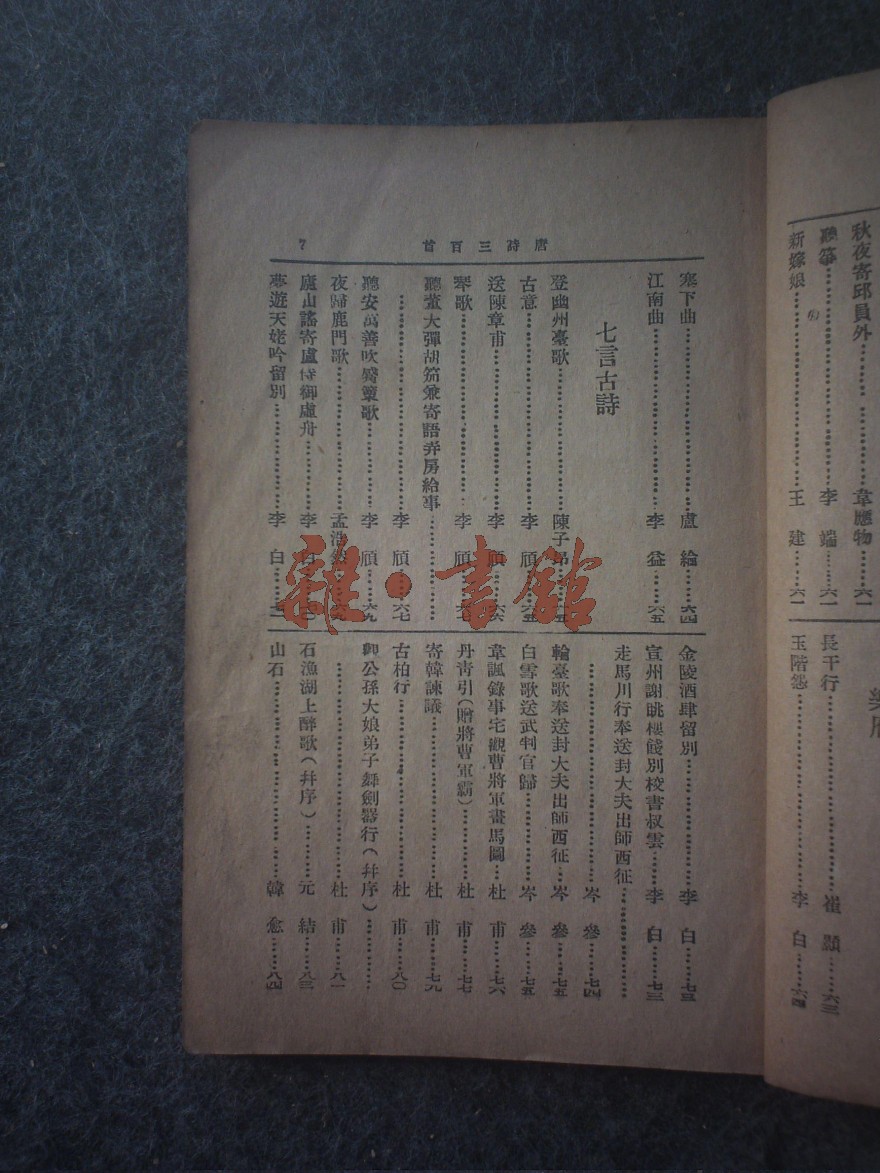 秋夜寄邱員外……韋應物…六一
聽箏……李端…六一
新嫁娘……王建…六一
長干行……崔顥……六三
玉階怨……李白……六四
唐詩三百首
7
塞下曲……盧綸……六四
江南曲……李益……六五
七言古詩
登幽州臺歌……陳子昂……六五
古意……李頎……六五
送陳章甫……李頎……六六
琴歌……李頎……六七
聽董大彈胡笳兼寄語弄房給事……
……李頎……六七
聽安萬善吹觱篥歌……李頎……六九
夜歸鹿門歌……孟浩然……六九
廬山謠寄盧侍御虛舟……李白
夢遊天姥吟留別……李白
金陵酒肆留別……李白……七三
宣州謝眺樓餞別校書叔雲……李白……七三
走馬川行奉送封大夫出師西征……
……岑參……七四
輪臺歌奉送封大夫出師西征…岑參……七五
白雪歌送武判官歸……岑參……七五
韋諷錄事宅觀曹將軍畫馬圖…杜甫……七六
丹青引(贈將曹軍霸)……杜甫……七七
寄韓諫議……杜甫……七九
古柏行……杜甫……八〇
公孫大娘弟子舞劍器行(幷序)……
……杜甫……八一
石漁湖上醉歌(幷序)……元結……八三
山石……韓愈……八四
雜·書館